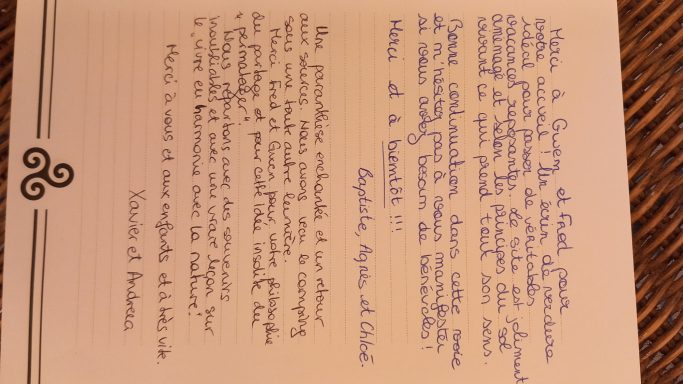 Merci à Gwen et Fred pour
votre accueil ! Un écrin de verdure
idéal pour passer de véritables
vacances reposantes. Le site est joliment
aménagé et selon les principes du sol
vivant ce qui prend tout son sens.
Bonne continuation dans cette voie
et n'hésitez pas à vous manifester
si vous avez besoin de bénévoles !
Merci et à bientôt !!!
Baptiste, Agnès et Chloé.
Une paranthèse enchantée et un retour
aux sources. Nous avons vécu le camping
sous une toute autre lumière.
Merci Fred et Gwen pour votre philosophie
du partage et pour cette idée insolite du
"permaloger".
Nous repartons avec des souvenirs
inoubliables et avec une vraie leçon sur
le "vivre en harmonie avec la nature".
Merci à vous et aux enfants et à très vite.
Xavier et Andreea